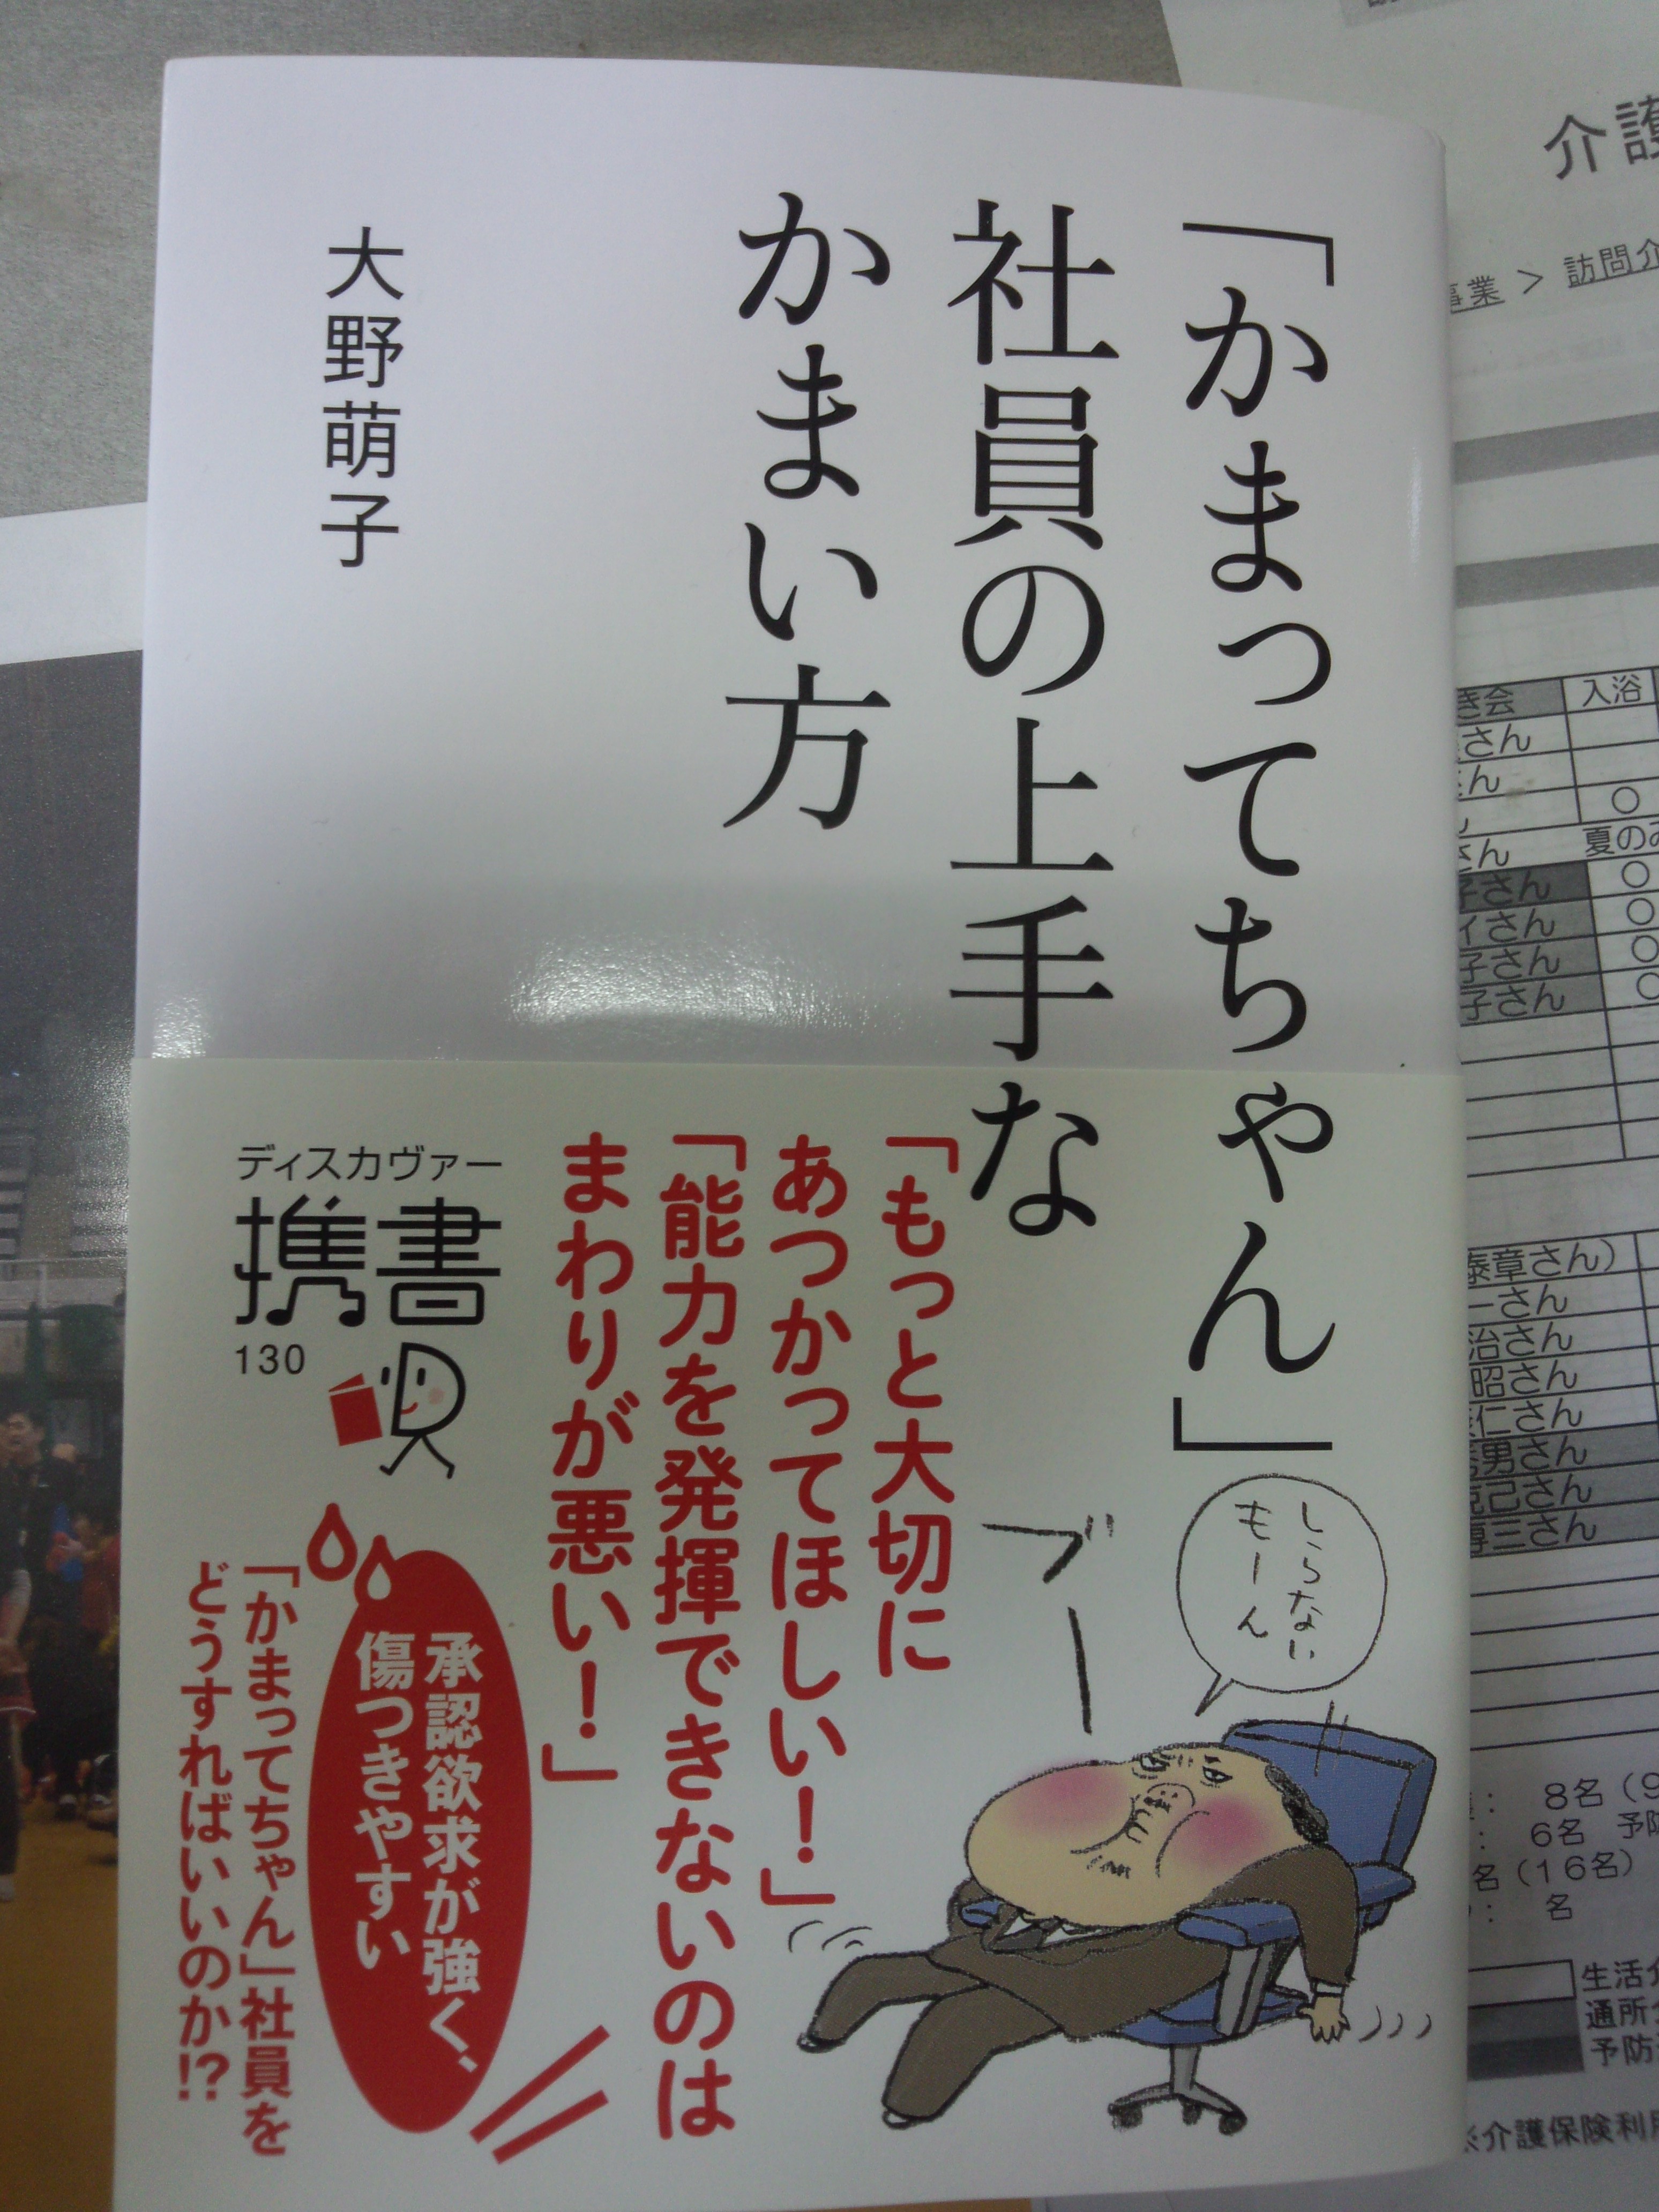 「かまってちゃん」
社員の上手な
かまい方
大野萌子
「もっと大切に
あつかってほしい！」
「能力を発揮できないのは
まわりが悪い！」
ディスカヴァー
携書
130
承認欲求が強く、
傷つきやすい
「かまってちゃん」社員を
どうすればいいのか!?
しらない
もーん
ブー
介護
事業 > 訪問介
き会
入浴
さん
さん
夏のみ
子さん
イさん
子さん
子さん
泰章さん）
一さん
治さん
昭さん
仁さん
男さん
克己さん
三さん
： 8名（9
： 6名 予防
名（16名）
： 名
生活介
通所介
予防
※介護保険利用